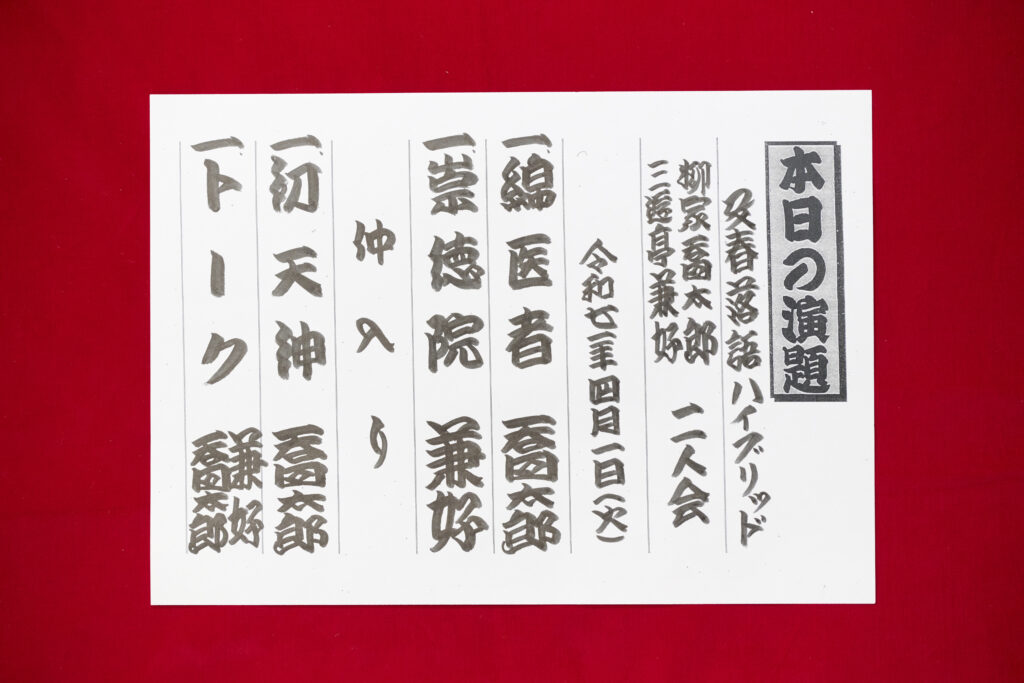 本日の演題
文春落語ハイブリッド
柳家喬太郎
三遊亭兼好
二人会
令和七年四月一日(火)
一、綿医者 喬太郎
一、崇徳院 兼好
仲入り
一、初天神 喬太郎
一、トーク 兼好
喬太郎